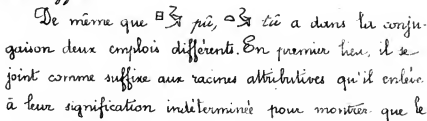 De même que pû, tû a dans la conju-
gaison deux emplois différents. En premier lieu, il se
joint comme suffixe aux racines attributives qu'il enlève
à leur signification indéterminée pour montrer que le